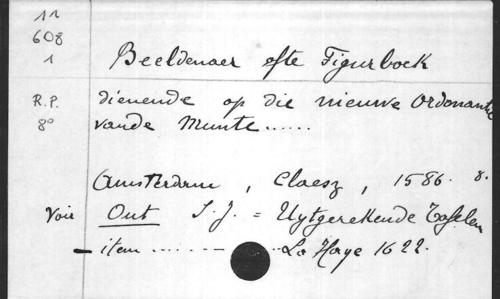 11
608
1
Beeldenaer ofte Figurboek
R.P. dienende op die nieuwe Ordonantie
8° vande Munte......
Amsterdam, Claesz, 1586. 8.
Voir Ont S.J. = Uytgerekende Tafelen
— item ........ La Haye 1622.